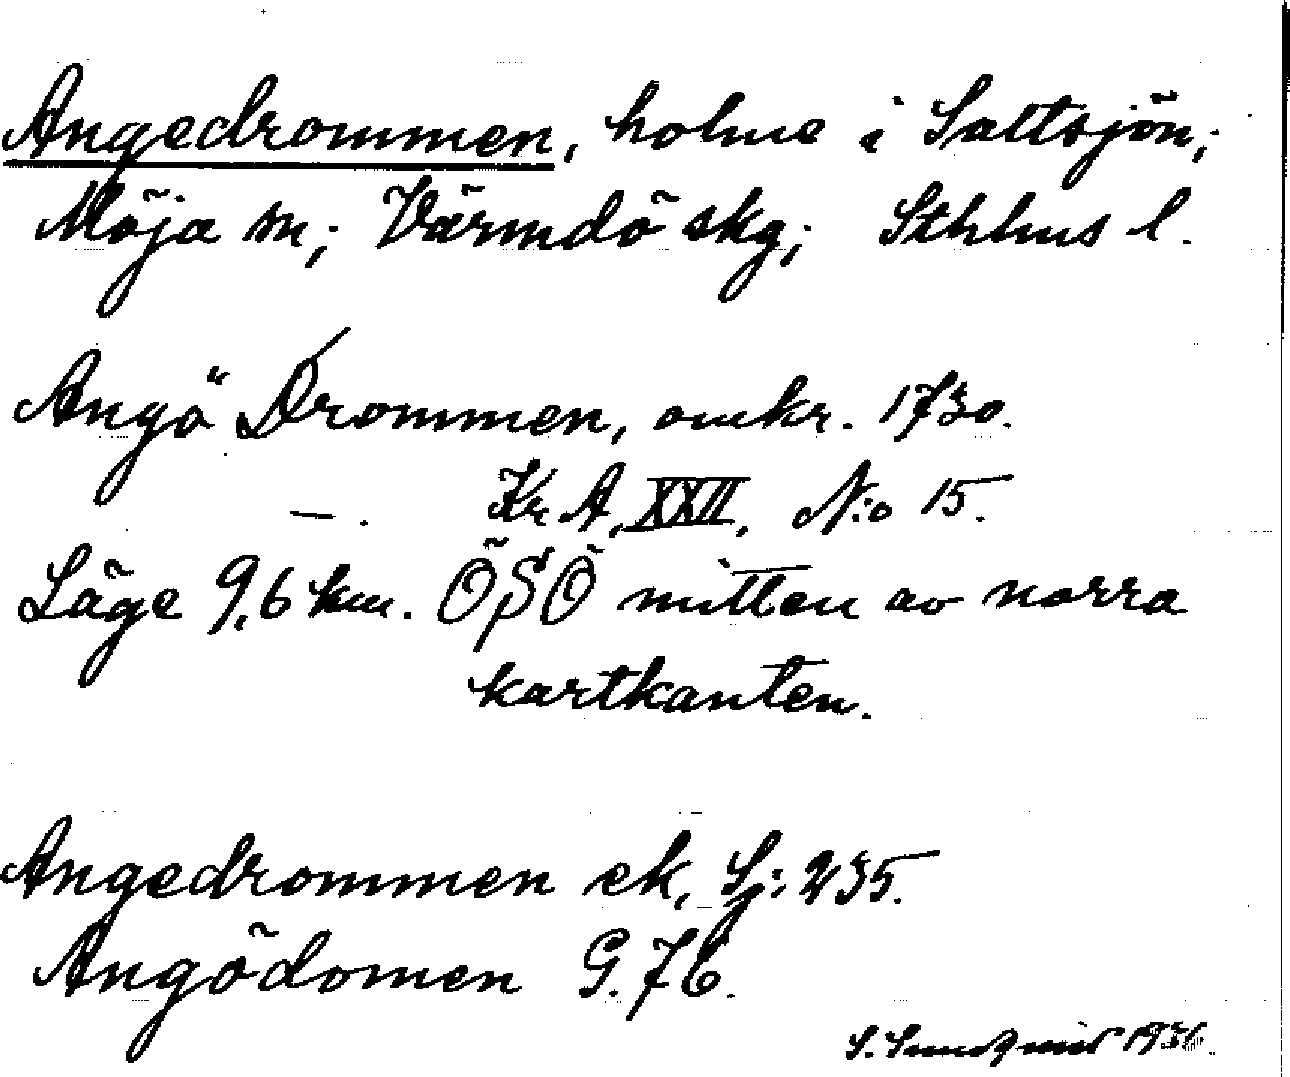 Angedrommen, holme i Saltsjön;
Möja sn; Värmdö skg; Sthlms l.
Angö Drommen, omkr. 1730.
—. Kr A, XXII, N:o 15.
Läge 9,6 km. ÖSÖ mitten av norra
kartkanten.
Angedrommen ek, Sj: 235.
Angödomen G. 76.
S. Sundqvist